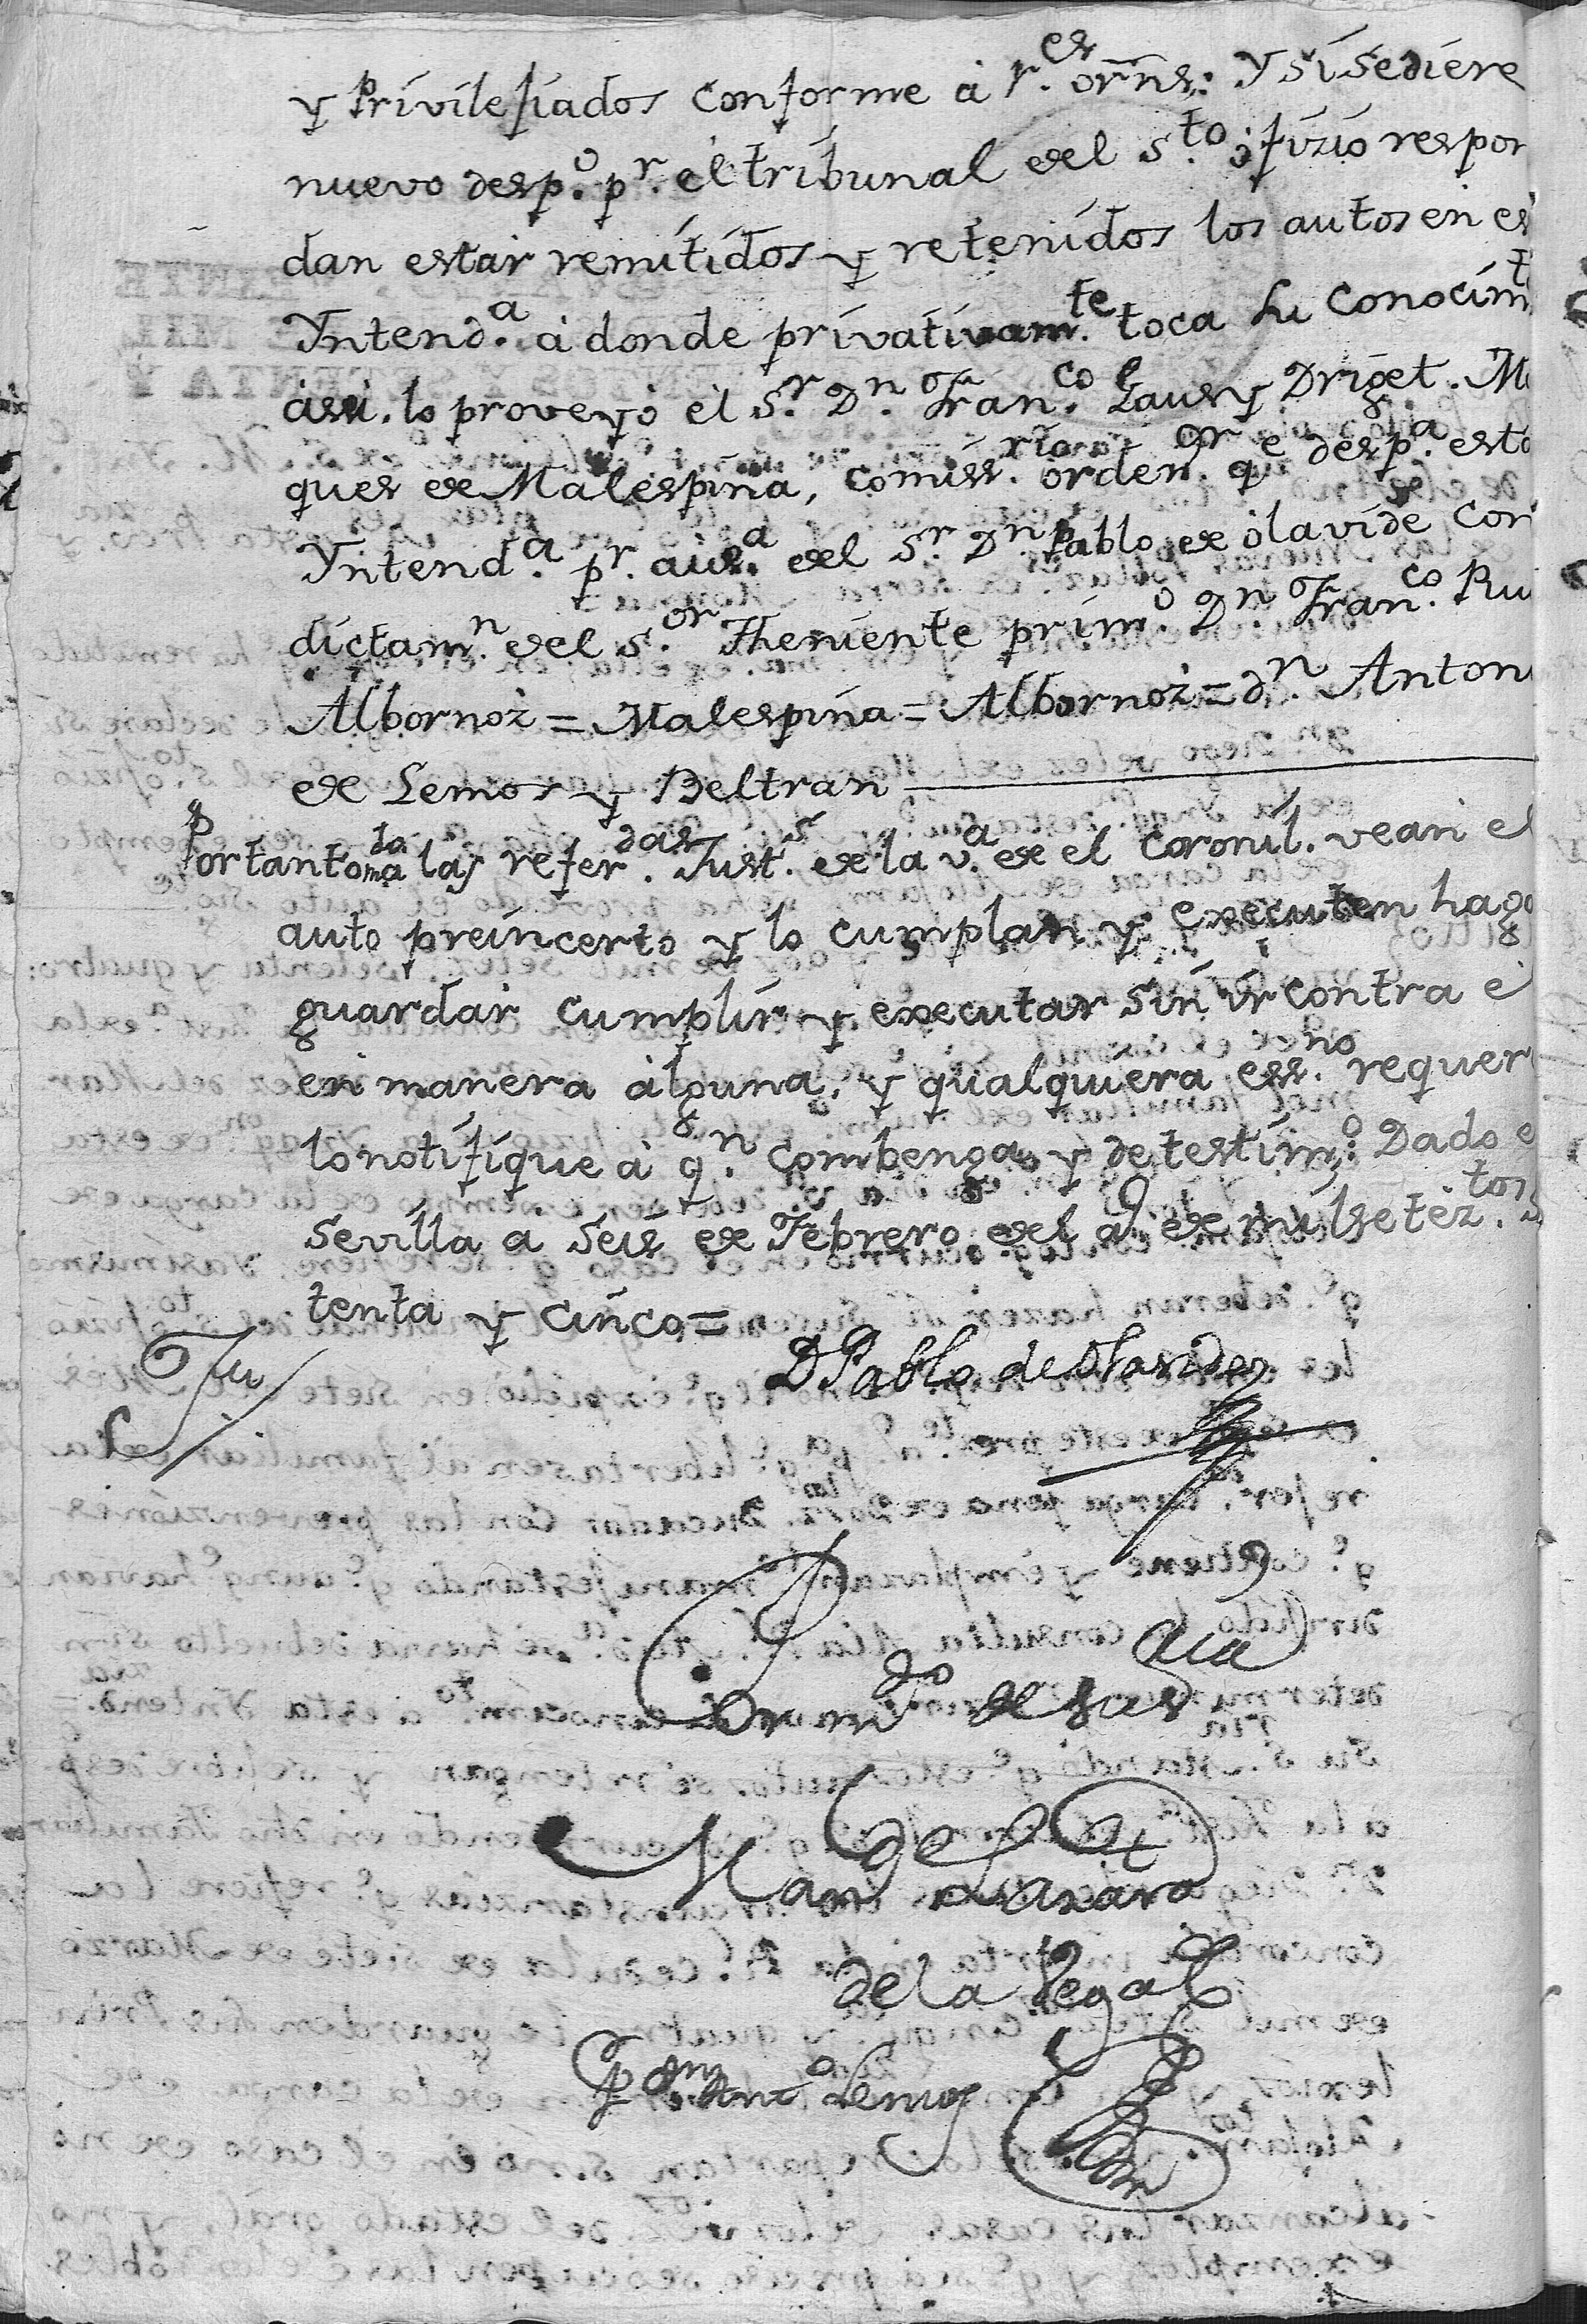 y Privilejiados conforme â r.es orñs: Y si se diere
nuevo desp.o pr. el tribunal del S.to ofizio respon
dan estar remitidos y retenidos los autos en es
Yntend.a â donde privativam.te toca su conocim.t
asi lo proveyó el S.r D.n Fran.co Laus y Driget. M
ques de Malespina, comiss.rio orden.or q.e desp.a esta
Yntend.a pr. aus.a del S.r D.n Pablo de olavide con
dictam.n del S.or Theniente prim.o D.n Fran.co Rui
Albornoz = Malespina = Albornoz = d.n Anton
de Lemos y Beltran
Portanto m.do a las refer.das Just.s de la v.a de el Coronil. vean el
auto preincerto y lo cumplan y executen haga
guardar cumplir y executar sin ir contra e
en manera alguna, y qualquiera ess.no requer
lo notifique â q.n combenga y de testim.o Dado e
Sevilla a Seis de Febrero del a.o de mil setez.tos S
tenta y cinco =
D Pablo de Olavides
Por m.do de su S.ria
de la Vega
P.r D.n Ant.o Lemos